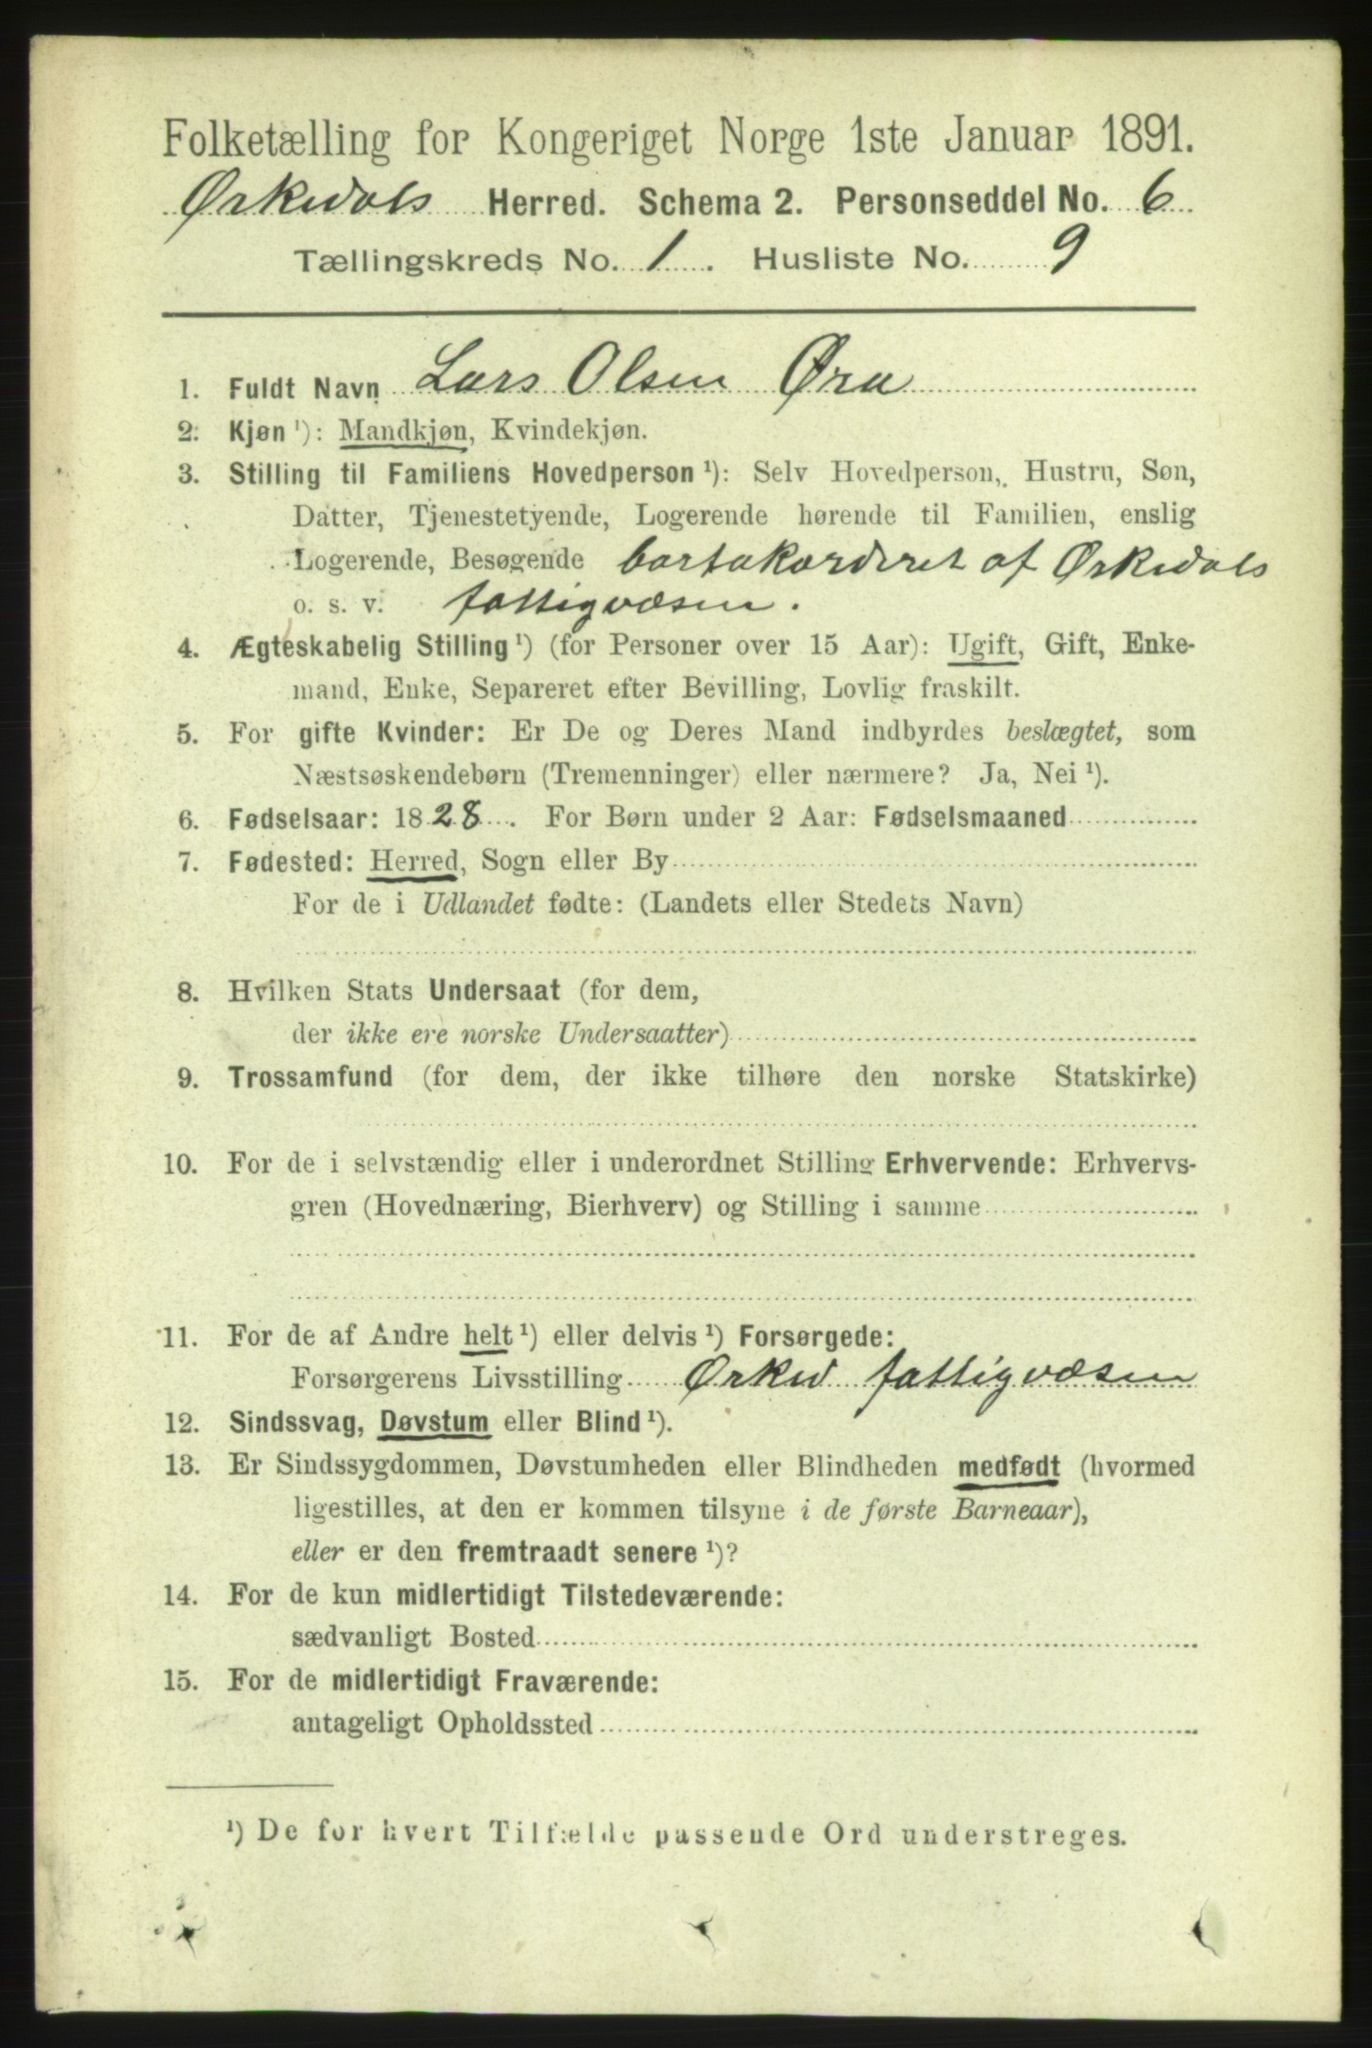 Folketælling for Kongeriget Norge 1ste Januar 1891.
Ørkedals Herred. Schema 2. Personseddel No. 6
Tællingskreds No. 1. Husliste No. 9
1. Fuldt Navn Lars Olsen Øra
2. Kjøn ¹): Mandkjøn, Kvindekjøn.
3. Stilling til Familiens Hovedperson ¹): Selv Hovedperson, Hustru, Søn,
Datter, Tjenestetyende, Logerende hørende til Familien, enslig
Logerende, Besøgende bortakorderet af Ørkedals
o. s. v. fattigvæsen.
4. Ægteskabelig Stilling ¹) (for Personer over 15 Aar): Ugift, Gift, Enke-
mand, Enke, Separeret efter Bevilling, Lovlig fraskilt.
5. For gifte Kvinder: Er De og Deres Mand indbyrdes beslægtet, som
Næstsøskendebørn (Tremenninger) eller nærmere? Ja, Nei ¹).
6. Fødselsaar: 1828. For Børn under 2 Aar: Fødselsmaaned
7. Fødested: Herred, Sogn eller By
For de i Udlandet fødte: (Landets eller Stedets Navn)
8. Hvilken Stats Undersaat (for dem,
der ikke ere norske Undersaatter)
9. Trossamfund (for dem, der ikke tilhøre den norske Statskirke)
10. For de i selvstændig eller i underordnet Stilling Erhvervende: Erhvervs-
gren (Hovednæring, Bierhverv) og Stilling i samme
11. For de af Andre helt ¹) eller delvis ¹) Forsørgede:
Forsørgerens Livsstilling Ørked fattigvæsen
12. Sindssvag, Døvstum eller Blind ¹).
13. Er Sindssygdommen, Døvstumheden eller Blindheden medfødt (hvormed
ligestilles, at den er kommen tilsyne i de første Barneaar),
eller er den fremtraadt senere ¹)?
14. For de kun midlertidigt Tilstedeværende:
sædvanligt Bosted
15. For de midlertidigt Fraværende:
antageligt Opholdssted
¹) De for hvert Tilfælde passende Ord understreges.